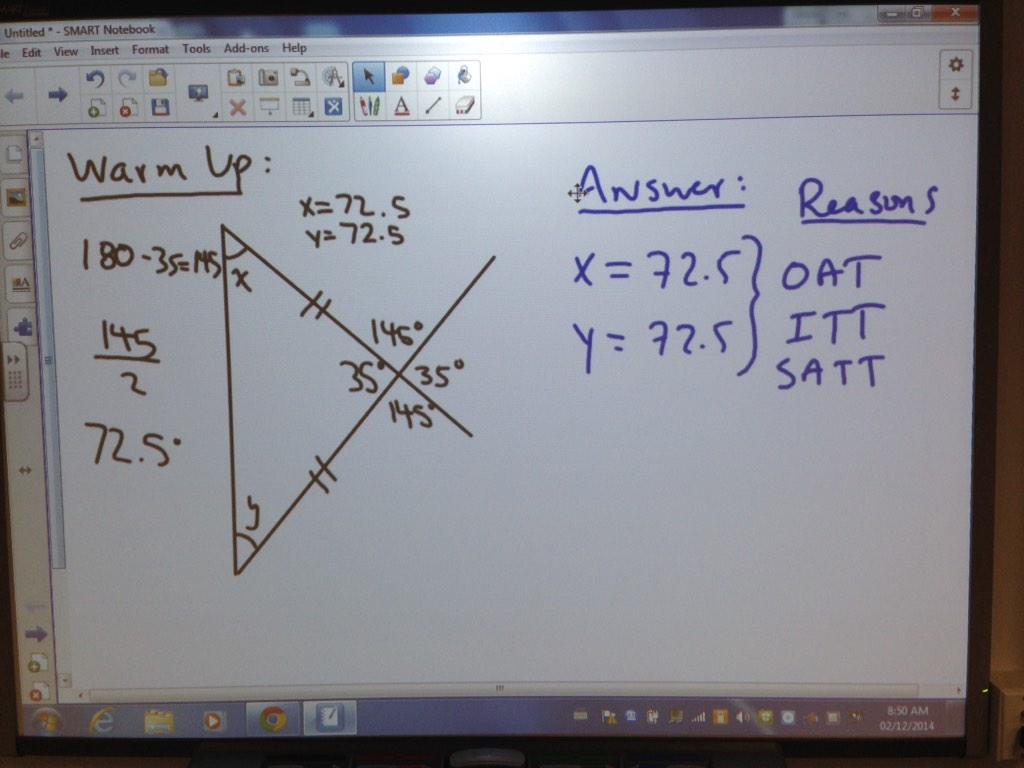 Untitled * - SMART Notebook
le Edit View Insert Format Tools Add-ons Help
Warm Up:
x=72.5
y=72.5
180-35=145
x
145
2
72.5°
y
145°
35°
35°
145°
Answer:
Reasons
x = 72.5
y = 72.5
OAT
ITT
SATT
8:50 AM
02/12/2014